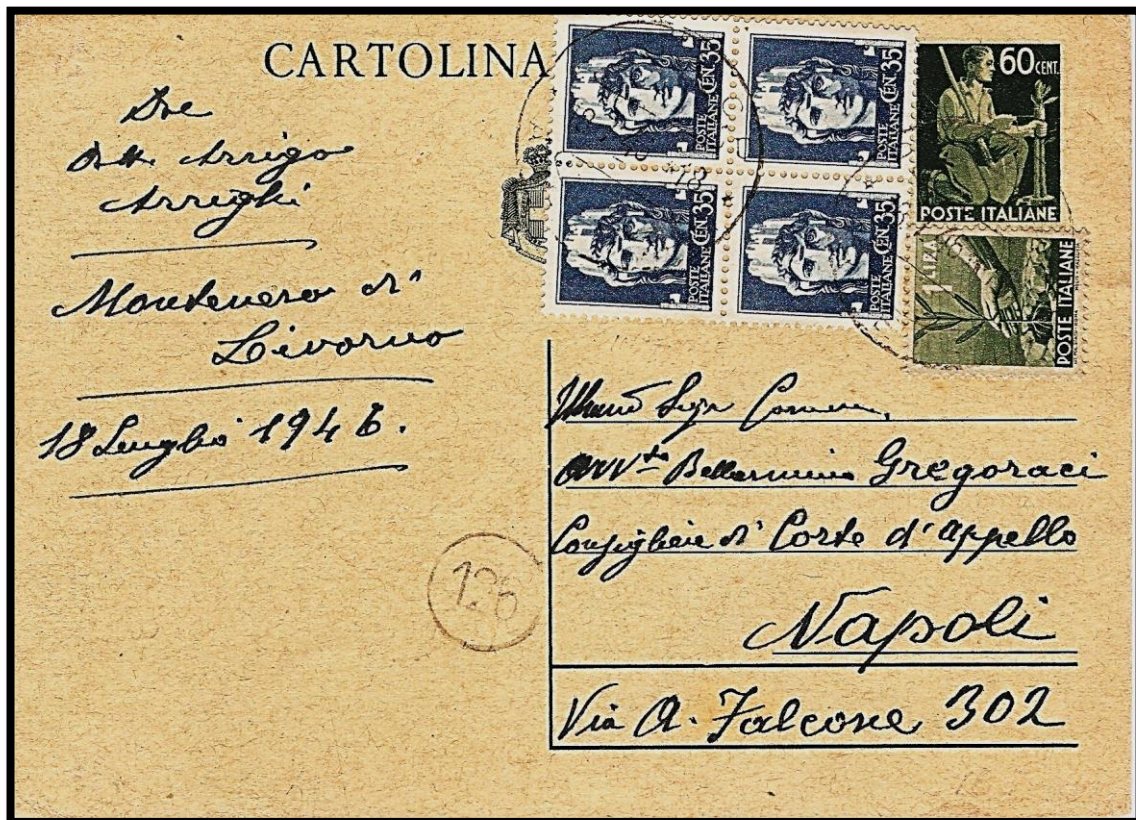 CARTOLINA
Arrigo
Arrighi
Montenero di
Livorno
18 Luglio 1946.
CEN. 35
POSTE
ITALIANE
CEN. 35
POSTE
ITALIANE
CEN. 35
POSTE
ITALIANE
CEN. 35
POSTE
ITALIANE
60 CENT.
POSTE ITALIANE
1 LIRA
POSTE ITALIANE
Sigr
Bellarmino Gregoraci
Consigliere di Corte d'appello
Napoli
Via A. Falcone 302